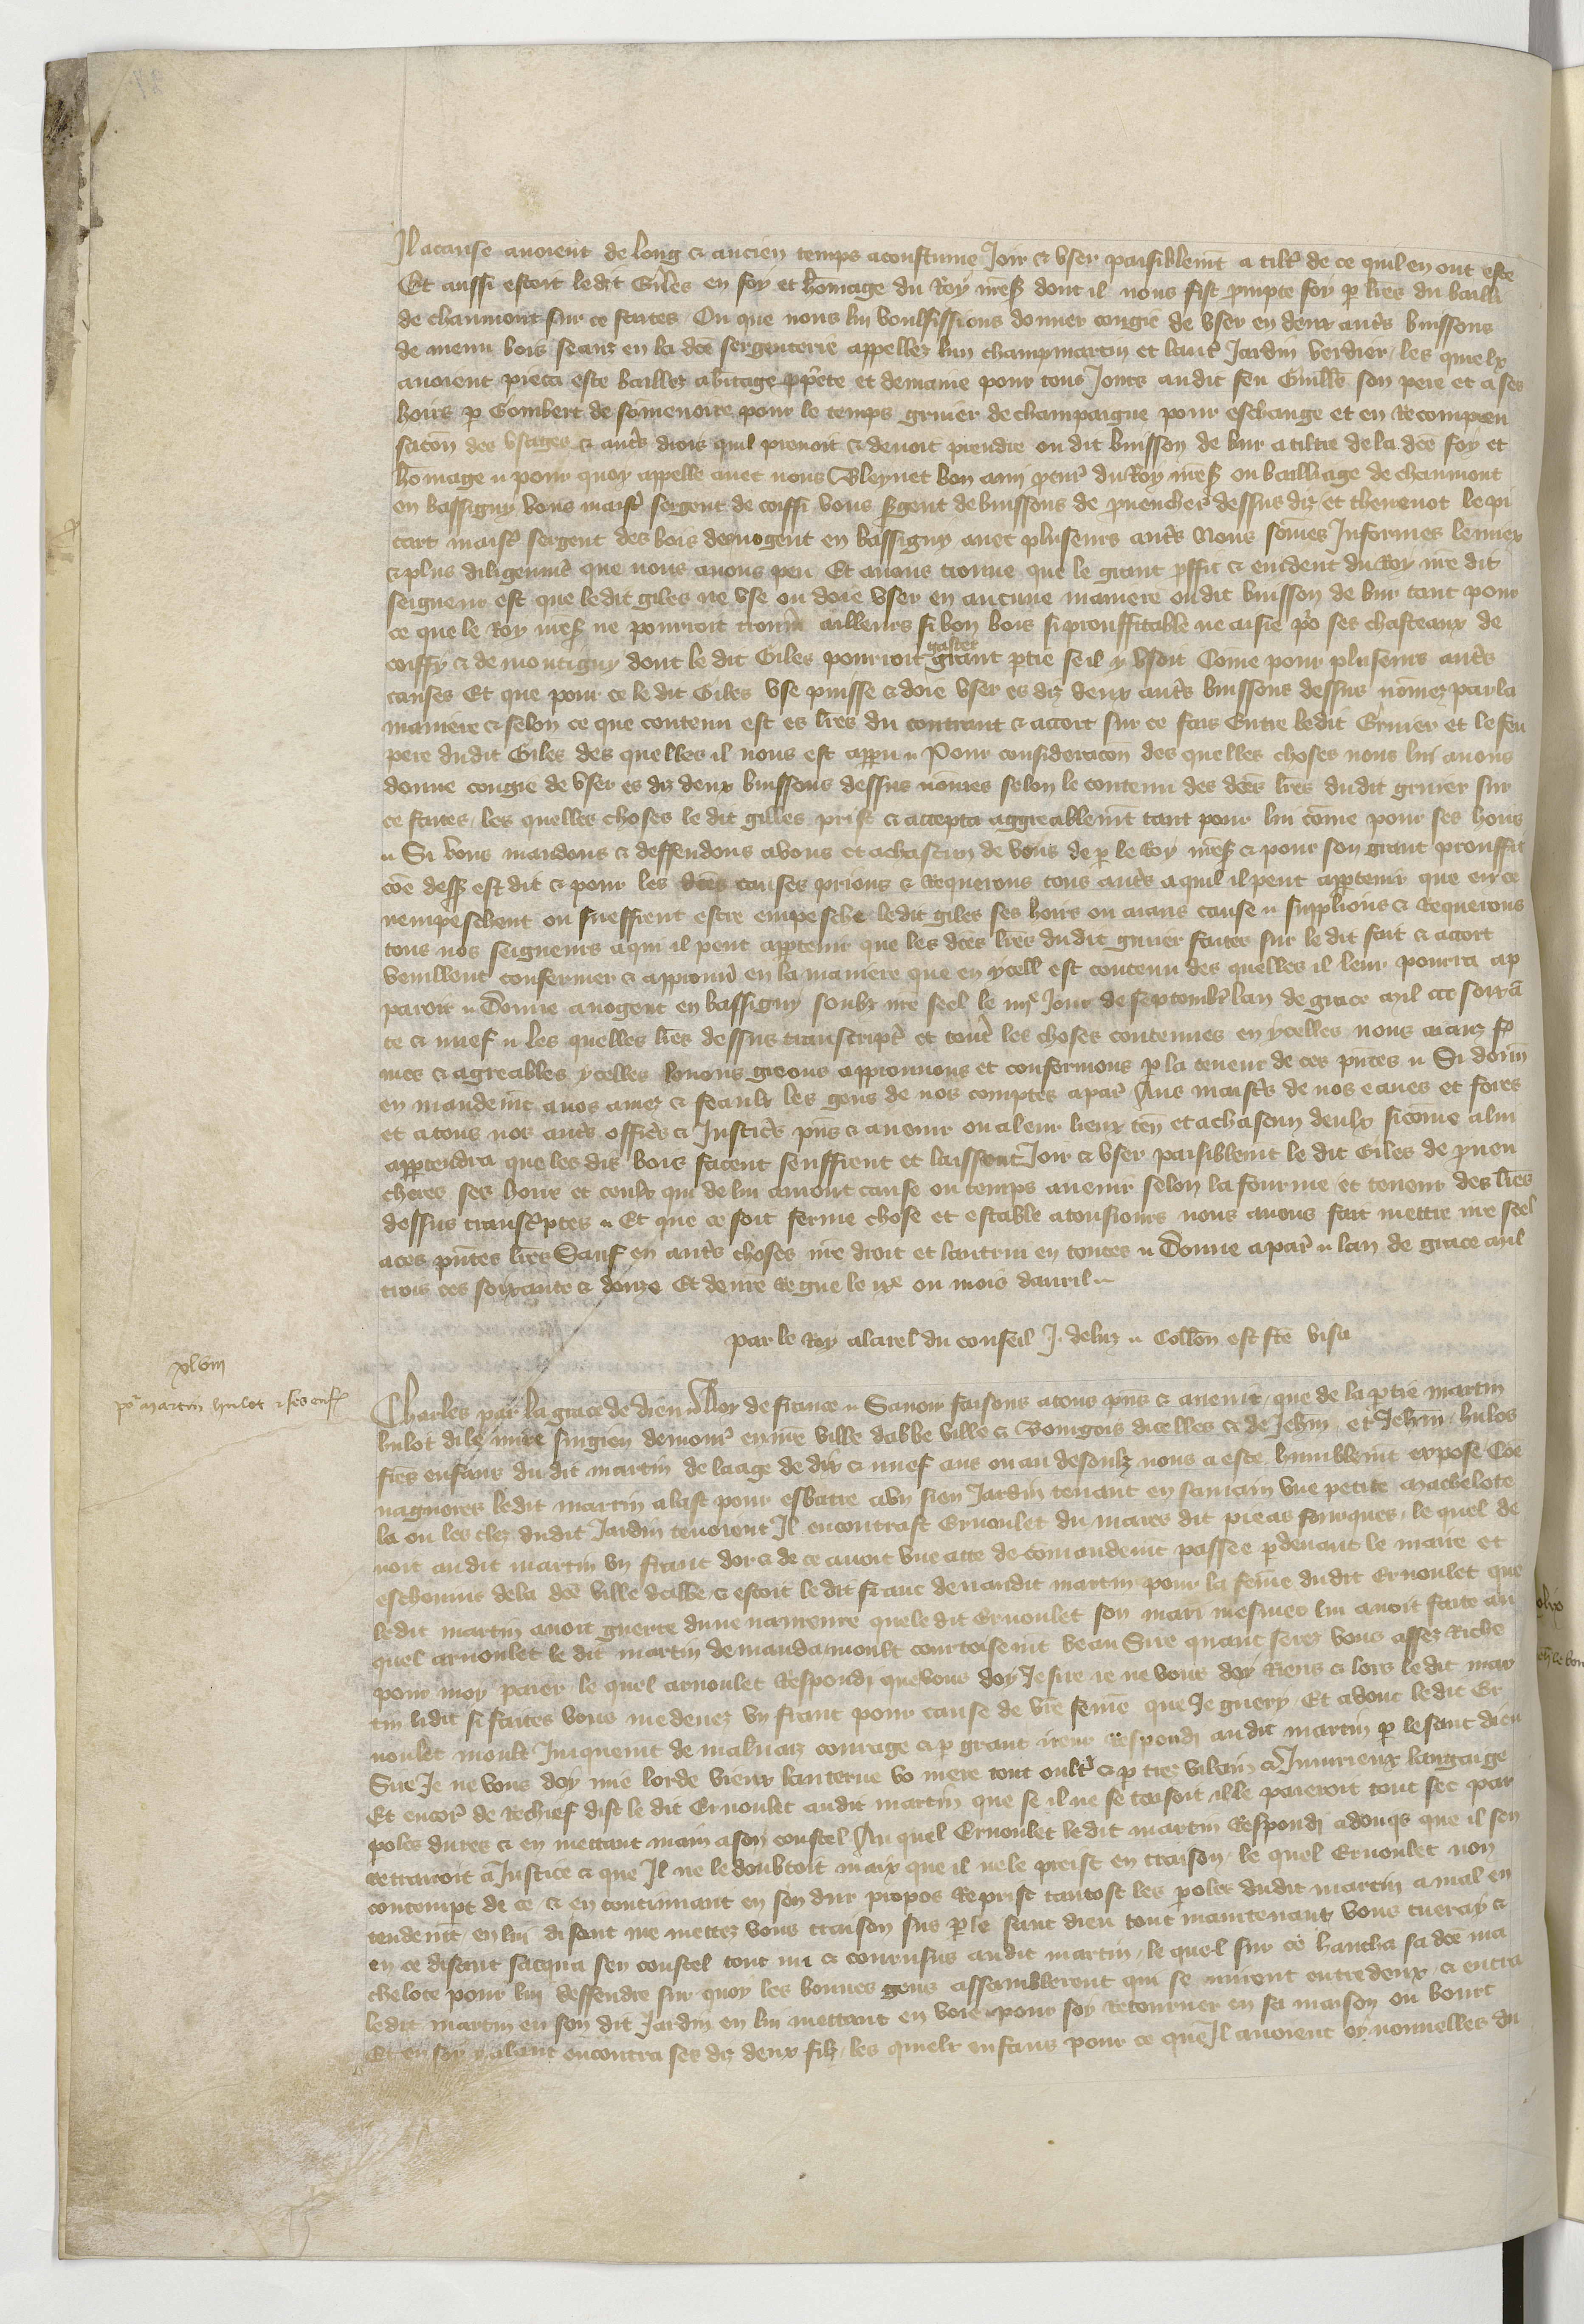 Il acause avoient de long & ancien temps acoustume Joir & user paisiblemt a tiltre de ce quil en ont este
Et aussi estoit ledit Giles en foy et homage du Roy mess dont il nous fist prompte foy p lres du bailli
de chaumont sur ce faites Ou que nous lui voulsissions donner congie de user en deux autres buissons
de menu bois seanz en la dce sergenterie appellez lun champmartin et lautre Jardin verdier, les quielx
avoient pieca este baillez a heritage pprete et demaine pour tous Jours audit feu Guille son pere et a ses
hoirs p Gombert de somenoire pour le temps gruier de champaigne pour eschange et en Recompen
sacon des usages & autres drois quil prenoit & devoit prendre ou dit buisson de bur a tiltre de la dce foy et
homage Pour quoy appelle avec nous Bleynet bon ami pcur du Roy mess ou bailliage de chaumont
en bassigny vous maistre sergent de coiffi vous sgent de buissons de prnencher dessus diz et thevenot le pi
cart maistre sergent des bois de nogent en bassigny avec pluseurs autres Nous somes Informes le miex
& plus diligenmt que nous avons peu Et avons trouve que le grant pffit & evident du Roy nre dit
seigneur est que ledit giles ne use ou doie user en aucune maniere ou dit buisson de bur tant pour
ce que le Roy mess ne pourroit trouver ailleurs si bon bois si prouffitable ne aisie pr ses chasteaux de
coiffy & de montigny dont le dit Giles pourroit gaster grant ptie se il y usoit Come pour pluseurs autres
causes Et que pour ce le dit Giles use puisse & doie user es diz deux autres buissons dessus nomez par la
maniere & selon ce que contenu est es lres du contraut & acort sur ce fais Entre ledit Gruier et le feu
pere dudit Giles des quelles il nous est apparu Pour consideracon des quelles choses nous lui avons
donne congie de user es diz deux buissons dessus nomes selon le contenu des dces lres dudit gruier sur
ce faites, les quelles choses le dit gilles prist & accepta aggreablemt tant pour lui come pour ses hoirs
Si vous mandons & deffendons a vous et a chascun de vous de p le Roy mess & pour son grant prouffit
coe dess est dit & pour les dces causes prions & Requerons tous autres a quil il peut appartenir que en ce
nempeschent ou sueffrent estre empesche ledit giles ses hoirs ou aians cause supplions & Requerons
tous nos seigneurs a qui il peut appartenir que les dces lres dudit gruier faites sur le dit fait & acort
veuillent confermer & approuver en la maniere que en ycelles est contenu des quelles il leur pourra ap
paroir Donne a nogent en bassigny soubz nre seel le iiije Jour de septembre lan de grace mil ccc soixa
te & nuef Les quelles lres dessus transcriptes et toutes les choses contenues en ycelles nous aianz fer
mes & agreables ycelles louons greons approuvons et confermons p la teneur de ces pntes Si donn
en mandemt a nos amez & feaulx les gens de nos comptes a par Aus maistres de nos eaues et fores
et a tous nos autres officiers & Justiciers pns & avenir ou a leur lieux ten et a chascun deulx si come a lui
appartendra que les dis bois facent seuffrent et laissent Joir & user paisiblemt le dit Giles de prnen
cheres ses hoirs et ceulx qui de lui auront cause ou temps avenir selon la fourme et teneur des lres
dessus transcptes Et que ce soit ferme chose et estable a tousiours nous avons fait mettre nre seel
a ces pntes lres Sauf en autres choses nre droit et lautrui en toutes Donne a par lan de grace mil
trois ces soixante & douze Et de nre Regne le ixe ou mois davril

par le Roy a la rel du conseil J. de luz Collon est fte visa

xlviij
pr martin hulot & ses enfs

Charles par la grace de dieu Roy de france Savoir faisons a tous pns & avenir, que de la ptie martin
hulot dit mire surgien demour en nre ville dabbeville & Bourgois dicelles & de Jehan et Jehan hulos
fres enfans du dit martin de laage de dix & nuef ans ou au desoubz nous a este humblemt expose Coe
nagueres ledit martin alast pour esbatre a un sien Jardin tenant en sa main une petite machelote
la ou les clez dudit Jardin tenoient Il encontrast Ernoulet du mares dit pie as fourques, le quel de
voit audit martin un franc dor & de ce avoit une acte de comandemt passee pdevant le maire et
eschevins de la dce ville dabbe & estoit le dit franc deu audit martin pour la feme dudit Ernoulet que
ledit martin avoit guerie dune navreure que le dit Ernoulet son mari mesmes lui avoit faite au
quel arnoulet le dit martin demanda moult courtoisemt beau Sire quant serez vous assez Riche
pour moy paier, le quel arnoulet Respondi que vous doy Je sire ie ne vous doy Riens & lors ledit mar
tin li dit si faites vous me devez un franc pour cause de vre feme que Je guery. Et adont le dit Er
noulet moult Iniquemt de malvaiz courage & p grant ireur Respondi au dit martin p le sanc dieu
Sire Je ne vous doy mie lorde vieux lanterne vo mere tout oultre & p tres vilain & Iniurieux langaige
Et encore de Rechief dist le dit Ernoulet audit martin que se il ne se taisoit il le paieroit tout sec par
poles dures & en mettant main a son coustel Au quel Ernoulet le dit martin Respondi adonqs que il sen
retrairoit a Justice & que Il ne le doubtoit maix que il ne le preist en traison, le quel Ernoulet non
contempt de ce & en continuant en son dur propos Reprist tantost les poles dudit martin a mal en
tendemt en lui disant me mettez vous traison sus p le sanc dieu tout maintenant vous tueray &
en ce disant sacqua sen coustel tout nu & courusus audit martin, le quel sur ce haucha sa dce ma
chelote pour lui deffendre sur quoy les bonnes gens assamblerent qui se mirent entre deux & entra
ledit martin en son dit Jardin en lui mettant en voie pour soy Retourner en sa maison ou bourt
Et en soy y alant encontra ses diz deux filz, les quielx enfans pour ce que Il avoient oy nouvelles du